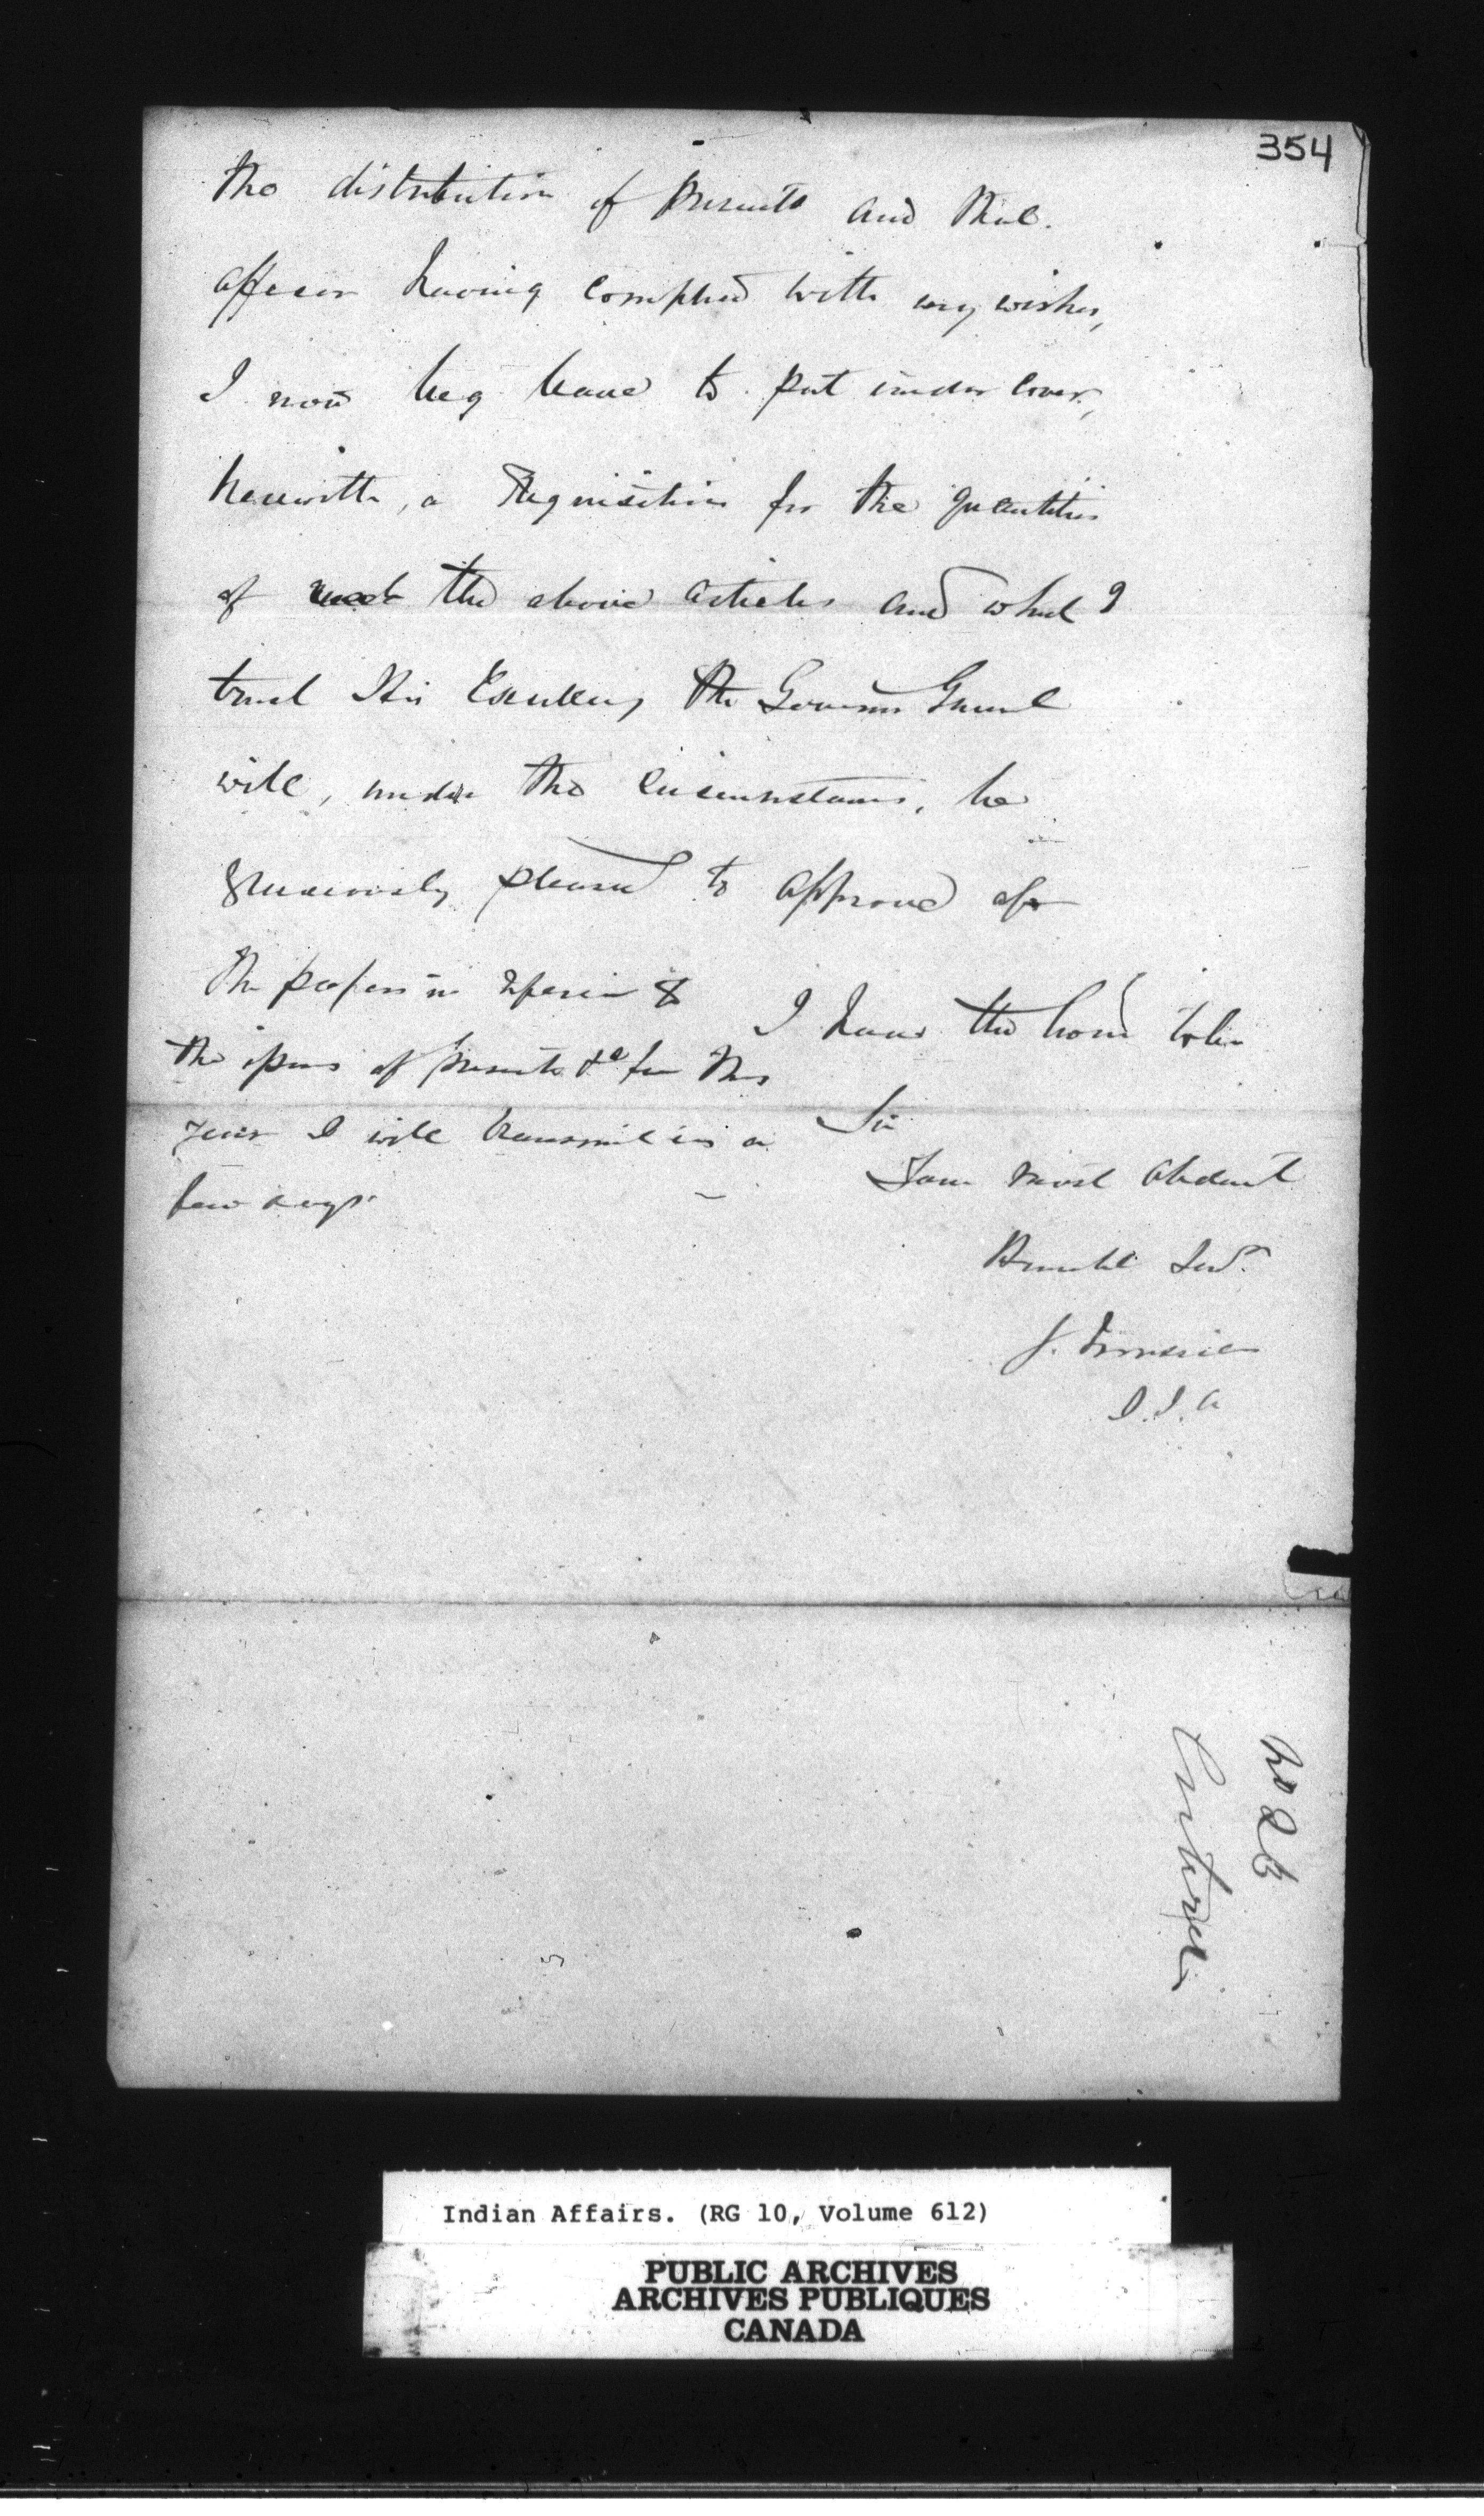 354
the distribution of presents and that
officer having complied with my wishes,
I now beg leave to put under cover,
herewith, a Requisition for the quantities
of the above articles and what I
trust His Excellency the Governor General
will, under the circumstances, be
graciously pleased to approve of
The papers in &
the of presents &c for this
year I will transmit in a
few days.
I have the honr to be
Sir
Your most obedient
Humble Sert.
J.
S.I.A
No 26
Entered
Indian Affairs. (RG 10, Volume 612)
PUBLIC ARCHIVES
ARCHIVES PUBLIQUES
CANADA